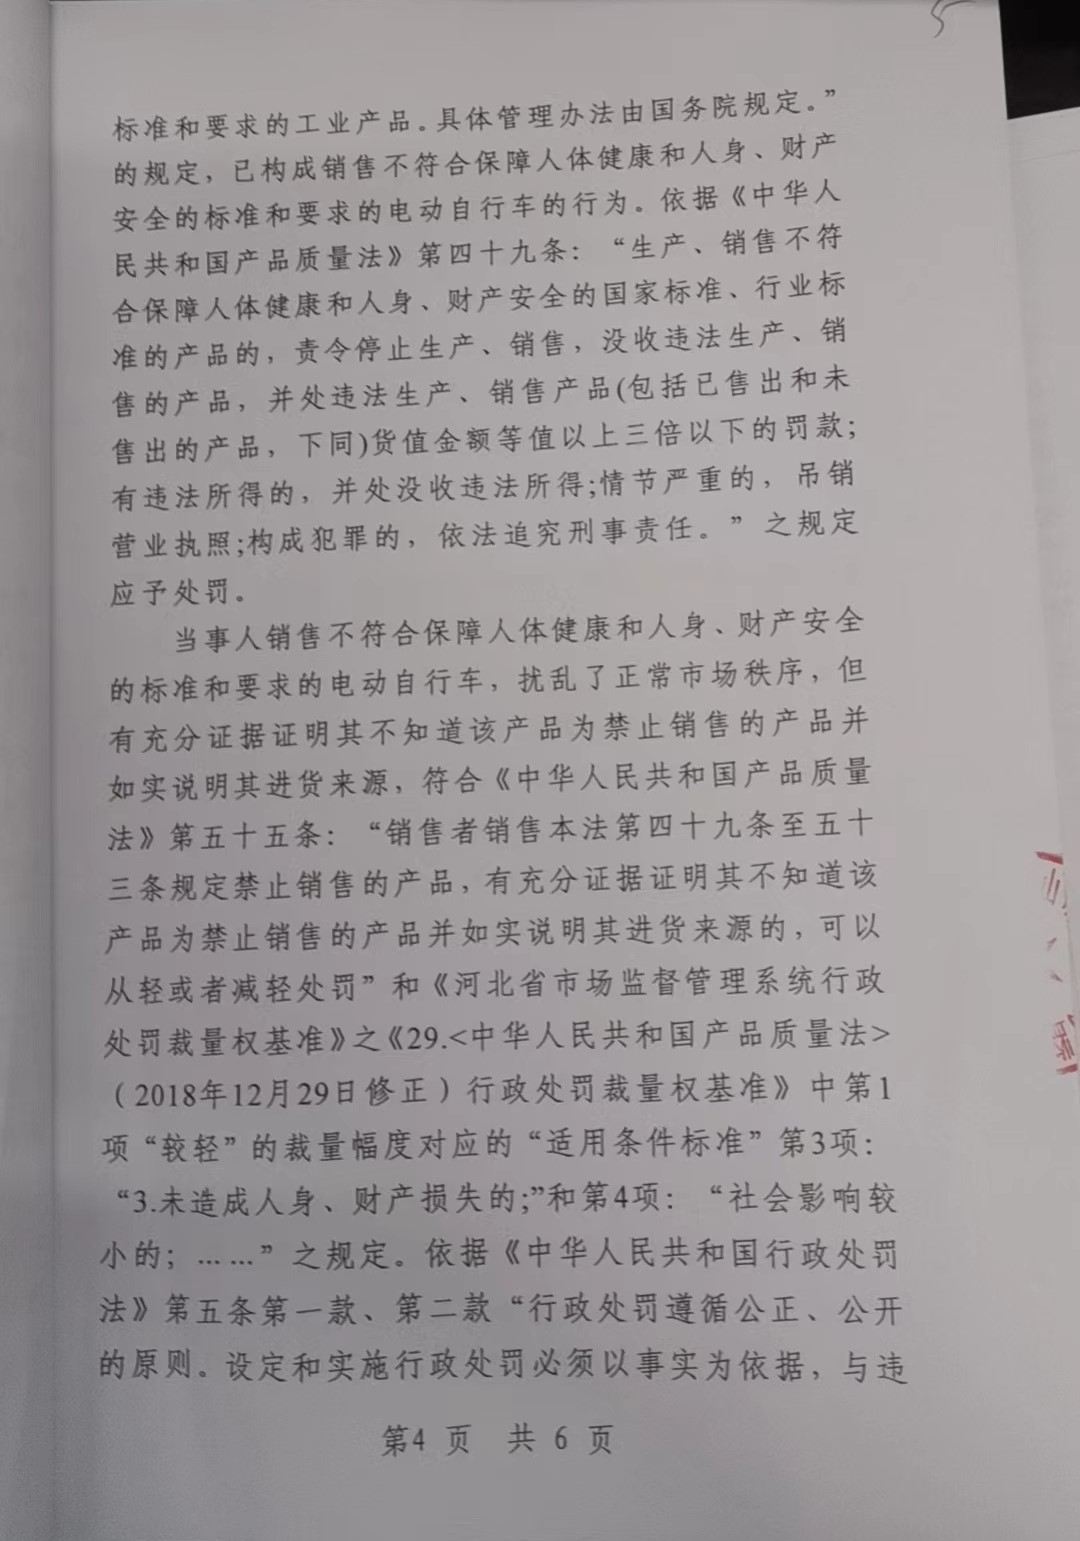 标准和要求的工业产品。具体管理办法由国务院规定。”
的规定，已构成销售不符合保障人体健康和人身、财产
安全的标准和要求的电动自行车的行为。依据《中华人
民共和国产品质量法》第四十九条：“生产、销售不符
合保障人体健康和人身、财产安全的国家标准、行业标
准的产品的，责令停止生产、销售，没收违法生产、销
售的产品，并处违法生产、销售产品(包括已售出和未
售出的产品，下同)货值金额等值以上三倍以下的罚款；
有违法所得的，并处没收违法所得;情节严重的，吊销
营业执照;构成犯罪的，依法追究刑事责任。”之规定
应予处罚。
当事人销售不符合保障人体健康和人身、财产安全
的标准和要求的电动自行车，扰乱了正常市场秩序，但
有充分证据证明其不知道该产品为禁止销售的产品并
如实说明其进货来源，符合《中华人民共和国产品质量
法》第五十五条：“销售者销售本法第四十九条至五十
三条规定禁止销售的产品，有充分证据证明其不知道该
产品为禁止销售的产品并如实说明其进货来源的，可以
从轻或者减轻处罚”和《河北省市场监督管理系统行政
处罚裁量权基准》之《29.<中华人民共和国产品质量法>
（2018年12月29日修正）行政处罚裁量权基准》中第1
项“较轻”的裁量幅度对应的“适用条件标准”第3项：
“3.未造成人身、财产损失的;”和第4项：“社会影响较
小的；……”之规定。依据《中华人民共和国行政处罚
法》第五条第一款、第二款“行政处罚遵循公正、公开
的原则。设定和实施行政处罚必须以事实为依据，与违
第4 页 共 6 页